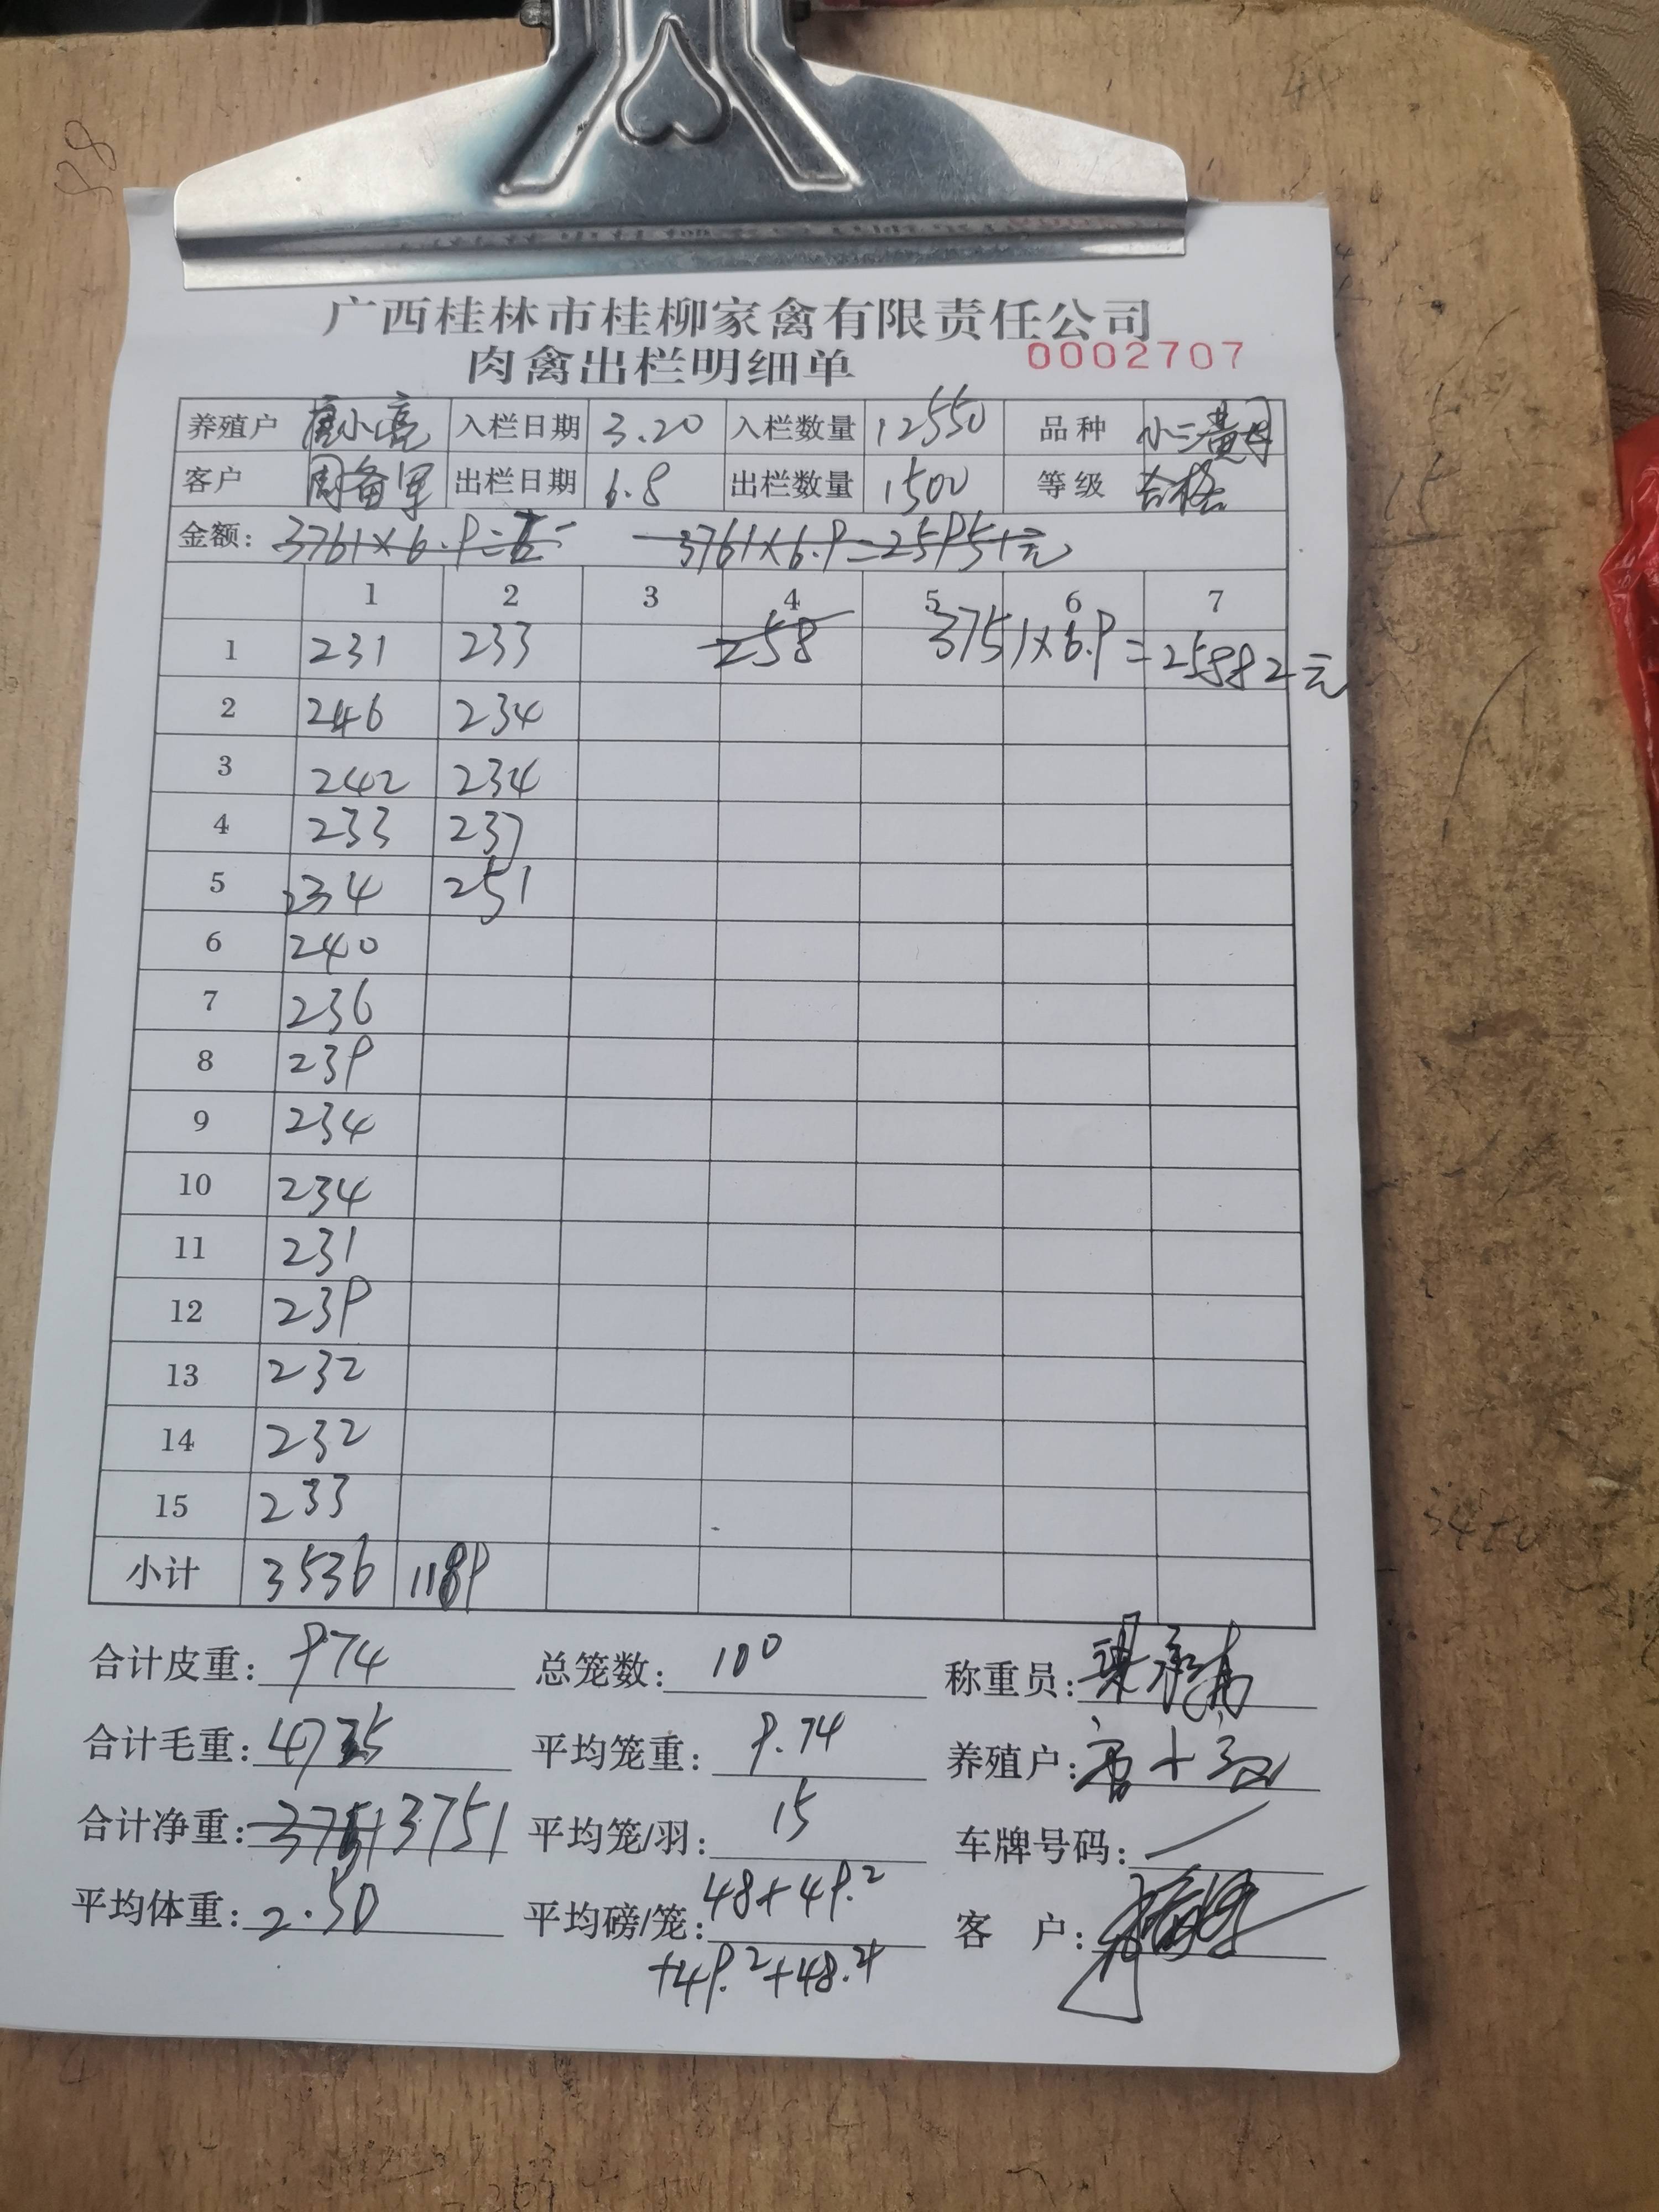 广西桂林市桂柳家禽有限责任公司
肉禽出栏明细单 0002707
养殖户 唐小亮 入栏日期 3.20 入栏数量 12550 品种 小三黄母
客户 周备军 出栏日期 6.8 出栏数量 1500 等级 合格
金额: 3761×6.9= 3761×6.9=25951元
1 2 3 4 5 6 7
1 231 233 258 3751×6.9=25882元
2 246 234
3 242 234
4 233 237
5 234 251
6 240
7 236
8 239
9 234
10 234
11 231
12 239
13 232
14 232
15 233
小计 3536 1189
合计皮重: 974 总笼数: 100 称重员:
合计毛重: 4725 平均笼重: 9.74 养殖户:
合计净重: 3751 平均笼/羽: 15 车牌号码:
平均体重: 2.50 平均磅/笼: 48+49.2 客户:
+49.2+48.4